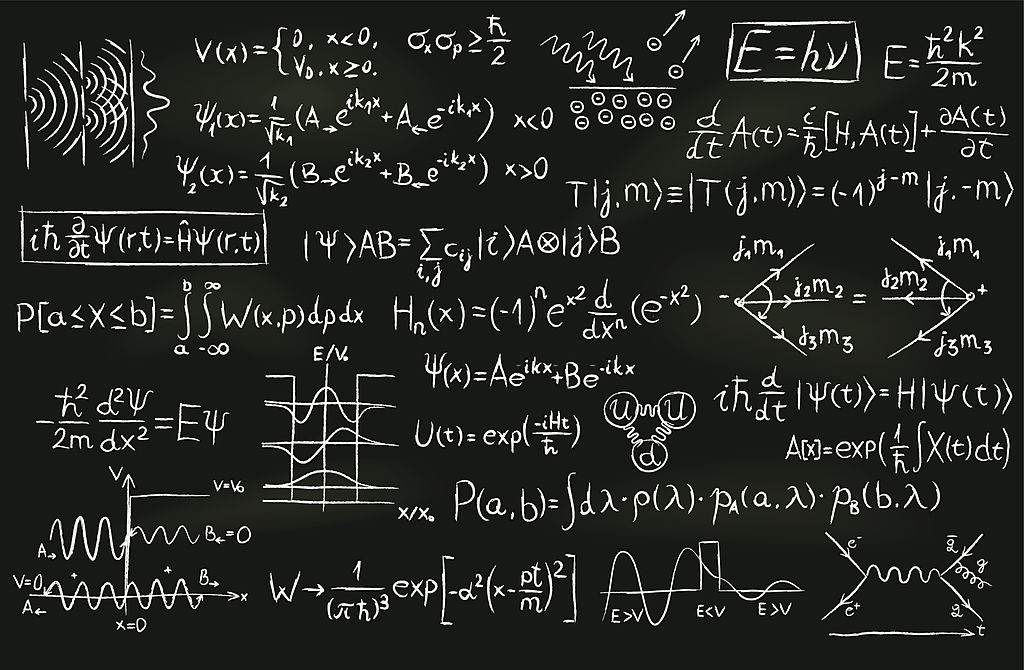 V(x) = { 0, x<0, V₀, x≥0.
σₓσₚ ≥ ħ/2
E = hν
E = ħ²k²/2m
Ψ₁(x) = 1/√k₁ (A→ e^{ik₁x} + A← e^{-ik₁x}) x<0
d/dt A(t) = i/ħ [H, A(t)] + ∂A(t)/∂t
Ψ₂(x) = 1/√k₂ (B→ e^{ik₂x} + B← e^{-ik₂x}) x>0
T|j,m⟩ ≡ |T(j,m)⟩ = (-1)^{j-m} |j,-m⟩
iħ ∂/∂t Ψ(r,t) = ĤΨ(r,t)
|Ψ⟩AB = Σ_{i,j} c_{ij} |i⟩A⊗|j⟩B
j₁m₁ j₁m₁
- j₂m₂ = j₂m₂ +
j₃m₃ j₃m₃
P[a≤X≤b] = ∫_a^b ∫_{-∞}^{∞} W(x,p) dp dx
Hₙ(x) = (-1)ⁿ e^{x²} d/dxⁿ (e^{-x²})
E/V₀
Ψ(x) = Ae^{ikx} + Be^{-ikx}
-ħ²/2m d²Ψ/dx² = EΨ
U(t) = exp(-iHt/ħ)
u u
d
iħ d/dt |Ψ(t)⟩ = H|Ψ(t)⟩
A[x] = exp(1/ħ ∫X(t)dt)
x/x₀
P(a,b) = ∫dλ·ρ(λ)·p_A(a,λ)·p_B(b,λ)
V
V=V₀
A→ B←=0
V=0 + + B→
A← x
x=0
W → 1/(πħ)³ exp[-α²(x - pt/m)²]
E>V E<V E>V
e⁻
g
e⁺
t